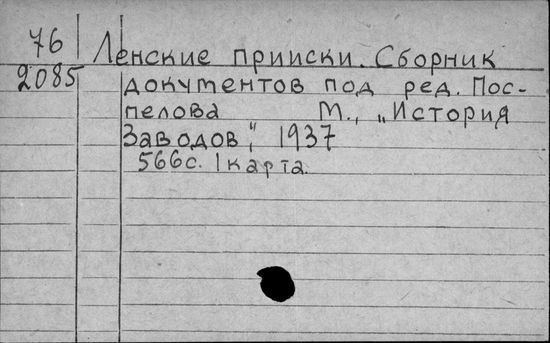 76 Ленские прииски. Сборник
2085 документов под ред. Пос-
пелова М., „История
Заводов“, 1937
566с. 1 карта.